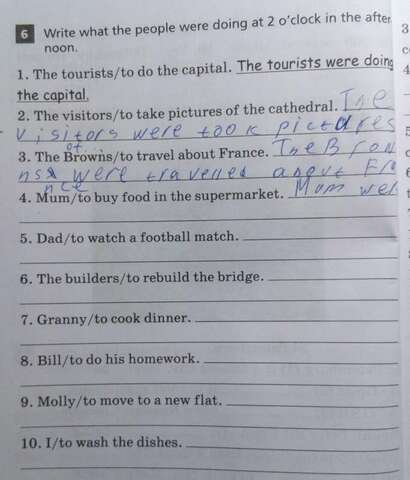 6 Write what the people were doing at 2 o'clock in the after
noon.
1. The tourists/to do the capital. The tourists were doing
the capital.
2. The visitors/to take pictures of the cathedral. The
visitors were took pictures
of.
3. The Browns/to travel about France. The Brow
ns were travelled about Fra
nce
4. Mum/to buy food in the supermarket. Mum wer
5. Dad/to watch a football match.
6. The builders/to rebuild the bridge.
7. Granny/to cook dinner.
8. Bill/to do his homework.
9. Molly/to move to a new flat.
10. I/to wash the dishes.